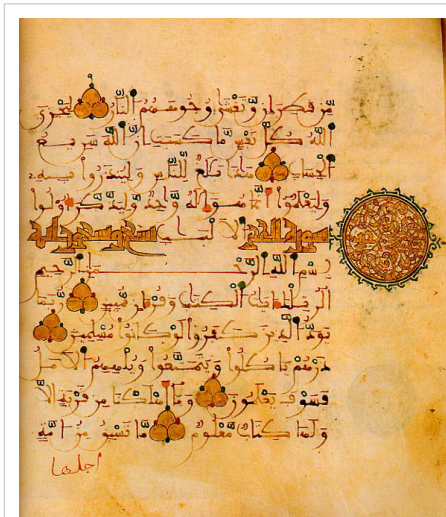 مِّن قَطِرَانٍ وَتَغْشَىٰ وُجُوهَهُمُ النَّارُ لِيَجْزِيَ
اللَّهُ كُلَّ نَفْسٍ مَّا كَسَبَتْ إِنَّ اللَّهَ سَرِيعُ
الْحِسَابِ هَٰذَا بَلَٰغٌ لِّلنَّاسِ وَلِيُنذَرُوا بِهِ
وَلِيَعْلَمُوا أَنَّمَا هُوَ إِلَٰهٌ وَاحِدٌ وَلِيَذَّكَّرَ أُولُوا
سورة الحجر الْأَلْبَٰبِ تسع وتسعون اية
بِسْمِ اللَّهِ الرَّحْمَٰنِ الرَّحِيمِ
الٓر تِلْكَ ءَايَٰتُ الْكِتَٰبِ وَقُرْءَانٍ مُّبِينٍ رُّبَمَا
يَوَدُّ الَّذِينَ كَفَرُوا لَوْ كَانُوا مُسْلِمِينَ
ذَرْهُمْ يَأْكُلُوا وَيَتَمَتَّعُوا وَيُلْهِهِمُ الْأَمَلُ
فَسَوْفَ يَعْلَمُونَ وَمَا أَهْلَكْنَا مِن قَرْيَةٍ إِلَّا
وَلَهَا كِتَابٌ مَّعْلُومٌ مَّا تَسْبِقُ مِنْ أُمَّةٍ
اجلها